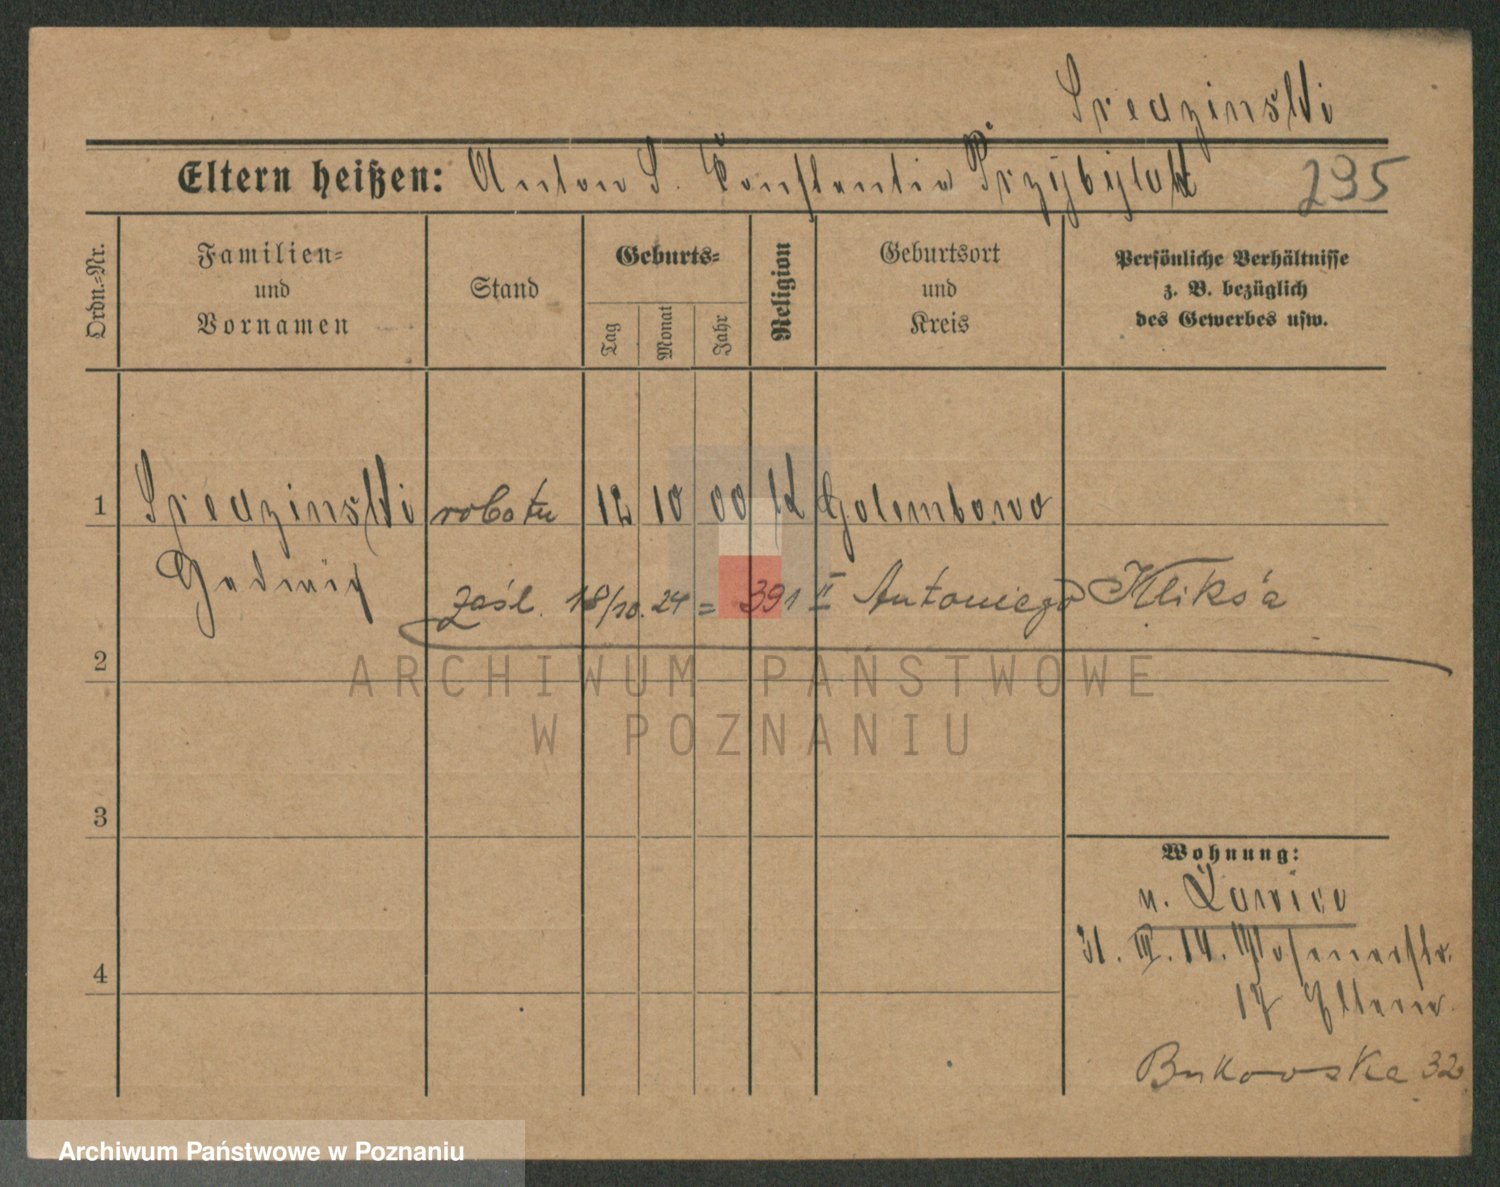 Sredzinski
Eltern heißen: Anton S. Konstantia Przybylak 295
Ordn.-Nr.
Familien-
und
Vornamen
Stand
Geburts-
Tag
Monat
Jahr
Religion
Geburtsort
und
Kreis
Persönliche Verhältnisse
z. B. bezüglich
des Gewerbes usw.
1 Sredzinski robotn 12 10 00 k Golembowo
Hedwig
zaśl. 18/10. 24 = 391 II Antoniego Kliks'a
2
ARCHIWUM PAŃSTWOWE
W POZNANIU
3
Wohnung:
n. Ławica
31. III. 14. Posenerstr.
17 Eltern
4
Bukowska 32
Archiwum Państwowe w Poznaniu